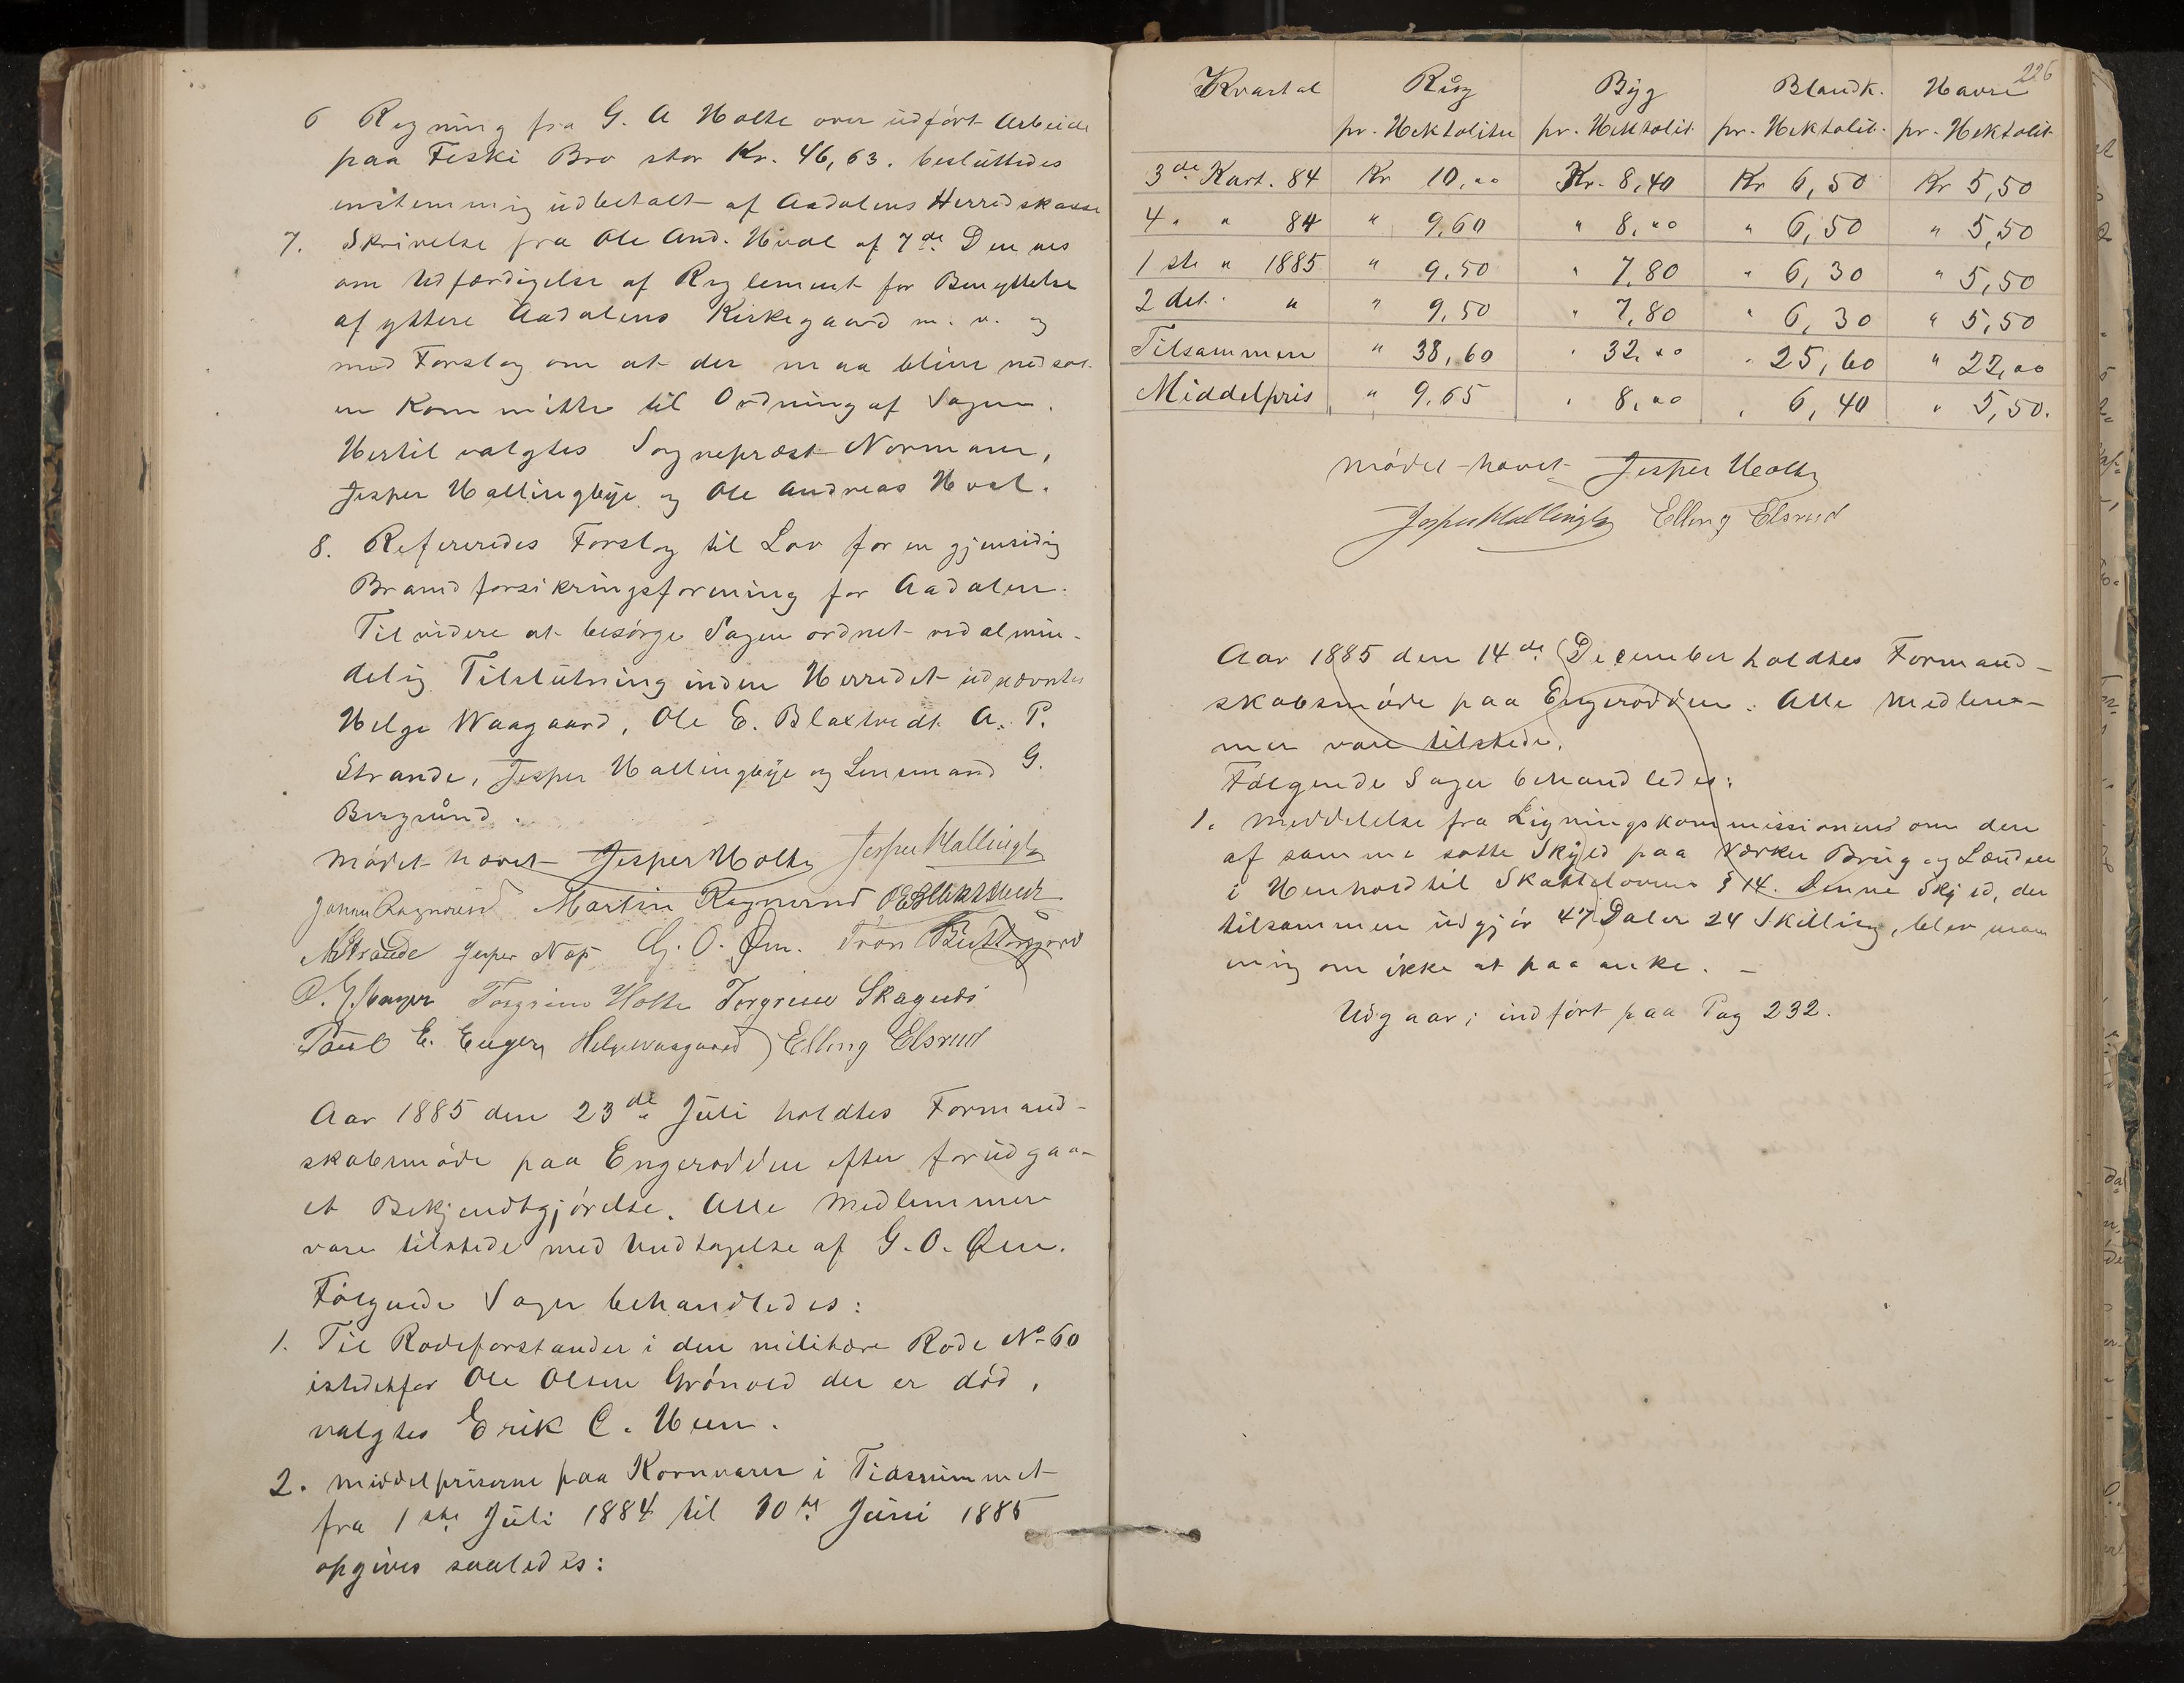 6 Regning fra G. A Holte over udført Arbeide
paa Feski Bro stor Kr. 46,63. besluttedes
enstemmig udbetalt af Aadalens Herredskasse
7. Skrivelse fra Ole And. Hval af 7de Dennes
om Udfærdigelse af Reglement for Benyttelse
af yttere Aadalens Kirkegaard m. v. og
med Forslag om at der maa blive nedsat
en Kommitte til Ordning af Sagen.
Hertil valgtes Sognepræst Normann,
Jesper Hallingbye og Ole Andreas Hval.
8. Refereredes Forslag til Lov for en gjensidig
Brandforsikringsforening for Aadalen.
Til videre at besørge Sagen ordnet ved almin-
delig Tilslutning inden Herredet udnævntes
Helge Waagaard, Ole E. Blaxtvedt A. P.
Strande, Jesper Hallingbye og Lensmand G.
Berglund.
Mødet hævet Jesper Holte Jesper Hallingby
Johan Ragnerud Martin Ragnerud OEBlakstvedt
APStrande Jesper Næs G. O. Øen. Iver
Torgrim Holte Torgrim Skagnæs
Paul E. Enger Helge Waagaard Elling Elsrud
Aar 1885 den 23de Juli holdtes Formand-
skabsmøde paa Engerodden efter forudgaa-
et Bekjendtgjørelse. Alle Medlemmer
vare tilstede med Undtagelse af G. O. Øen.
Følgende Sager behandledes:
1. Til Rodeforstander i den militære Rode No 60
istedetfor Ole Olsen Grønvold der er død,
valgtes Erik C. Heen.
2. Middelpriserne paa Kornvarer i Tidsrummet
fra 1ste Juli 1884 til 30te Juni 1885
opgives saaledes:
226
Kvartal Rug Byg Blandk. Havre
pr. Hektoliter pr. Hektolit. pr. Hektolit. pr. Hektolit
3de Kvart. 84 Kr 10,00 Kr. 8,40 Kr 6,50 Kr 5,50
4. " 84 " 9,60 " 8,00 " 6,50 " 5,50
1ste " 1885 " 9,50 " 7,80 " 6,30 " 5,50
2det. " " 9,50 " 7,80 " 6,30 " 5,50
Tilsammen " 38,60 " 32,00 " 25,60 " 22,00
Middelpris " 9,65 " 8,00 " 6,40 " 5,50.
Mødet hævet Jesper Holte
Jesper Hallingby Elling Elsrud
Aar 1885 den 14de December holdtes Formand-
skabsmøde paa Engerodden. Alle Medlem-
mer vare tilstede.
Følgende Sager behandledes:
1. Meddelelse fra Ligningskommissionens om den
af samme satte Skyld paa Værker Brug og Lændser
i Henhold til Skatteloven § 14. Denne Skyld, der
tilsammen udgjør 47 Daler 24 Skilling, blev man
enig om ikke at paaanke. -
Udgaar; indført paa Pag 232.